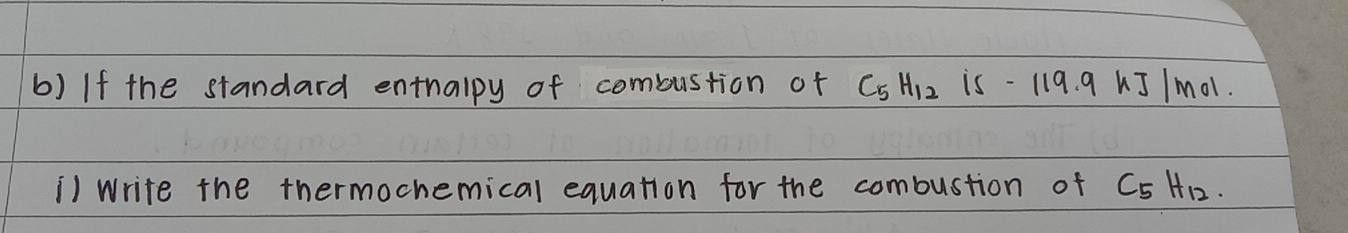 b) If the standard enthalpy of combustion of C₅H₁₂ is - 119.9 kJ/mol.
i) Write the thermochemical equation for the combustion of C₅H₁₂.